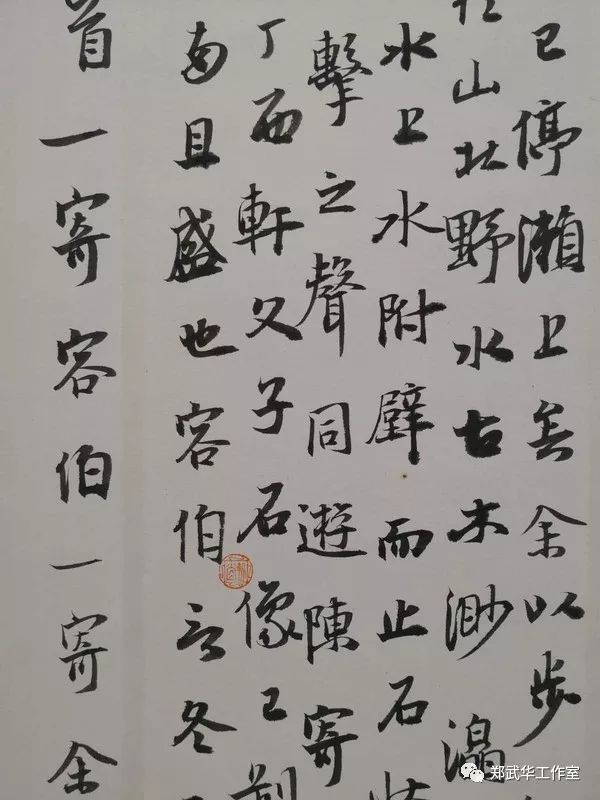 已停瀨上矣余以步
山北野水古木渺
水上水附壁而止石
擊之聲同遊陳寄
丁西軒父子石像已
南且盛也容伯言冬
首一寄容伯一寄余
郑武华工作室